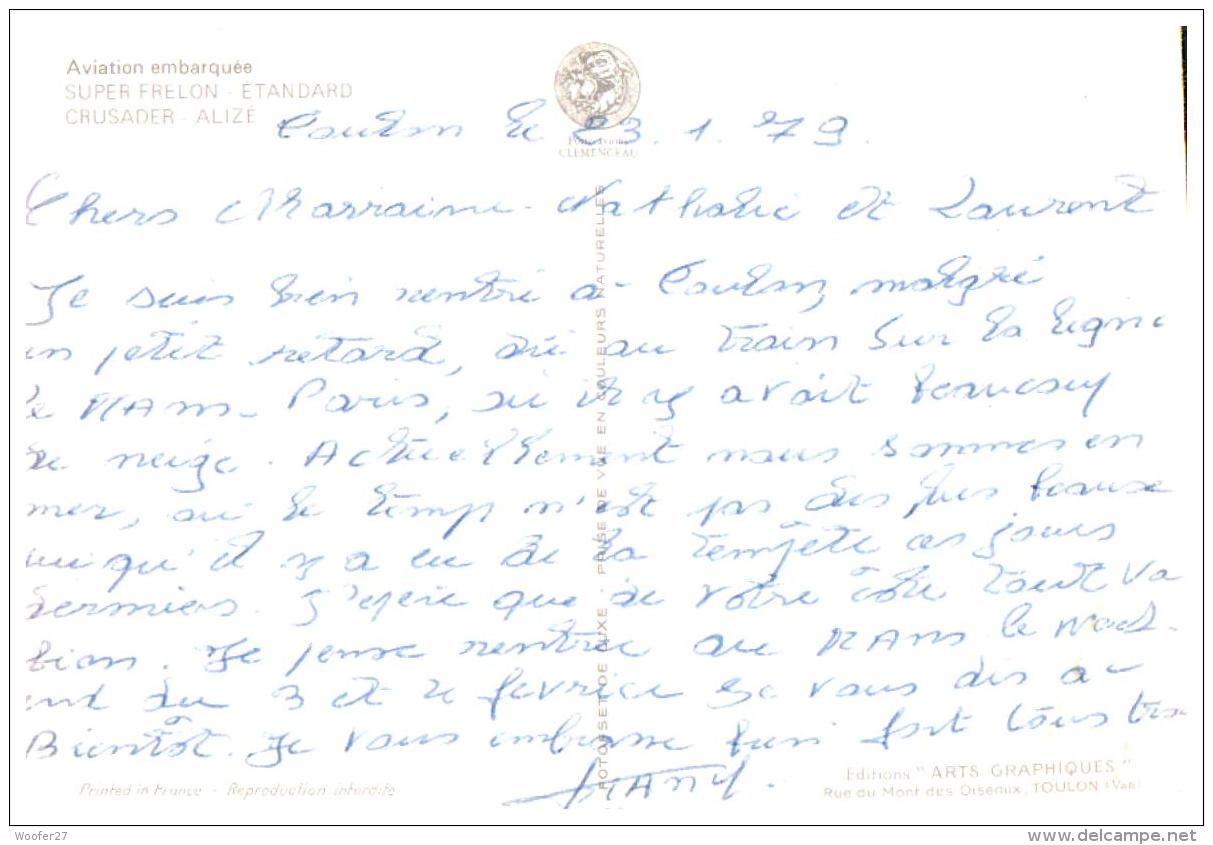 Aviation embarquée
SUPER FRELON - ÉTANDARD
CRUSADER - ALIZÉ
Porte-avions
CLEMENCEAU
Toulon le 23.1.79.
Chers Marraine Nathalie et Laurent
Je suis bien rentré a Toulon, malgré
un petit retard, dû au train sur la ligne
le MAns-Paris, où il y avait beaucoup
de neige. Actuellement nous sommes en
mer, où le temp n'est pas des plus beaux
puisqu'il y a eu de la tempête ces jours
derniers. J'espère que de votre côté tout va
bien. Je pense rentrer au MAns le week-
end du 3 et 4 fevrier je vous dis a
Bientôt. Je vous embrasse bien fort tous
PHOTOSSET DE LUXE - PRISE DE VUE EN COULEURS NATURELLES
Printed in France - Reproduction interdite
Editions "ARTS GRAPHIQUES"
Rue du Mont des Oiseaux, TOULON (Var)
Woofer27
www.delcampe.net